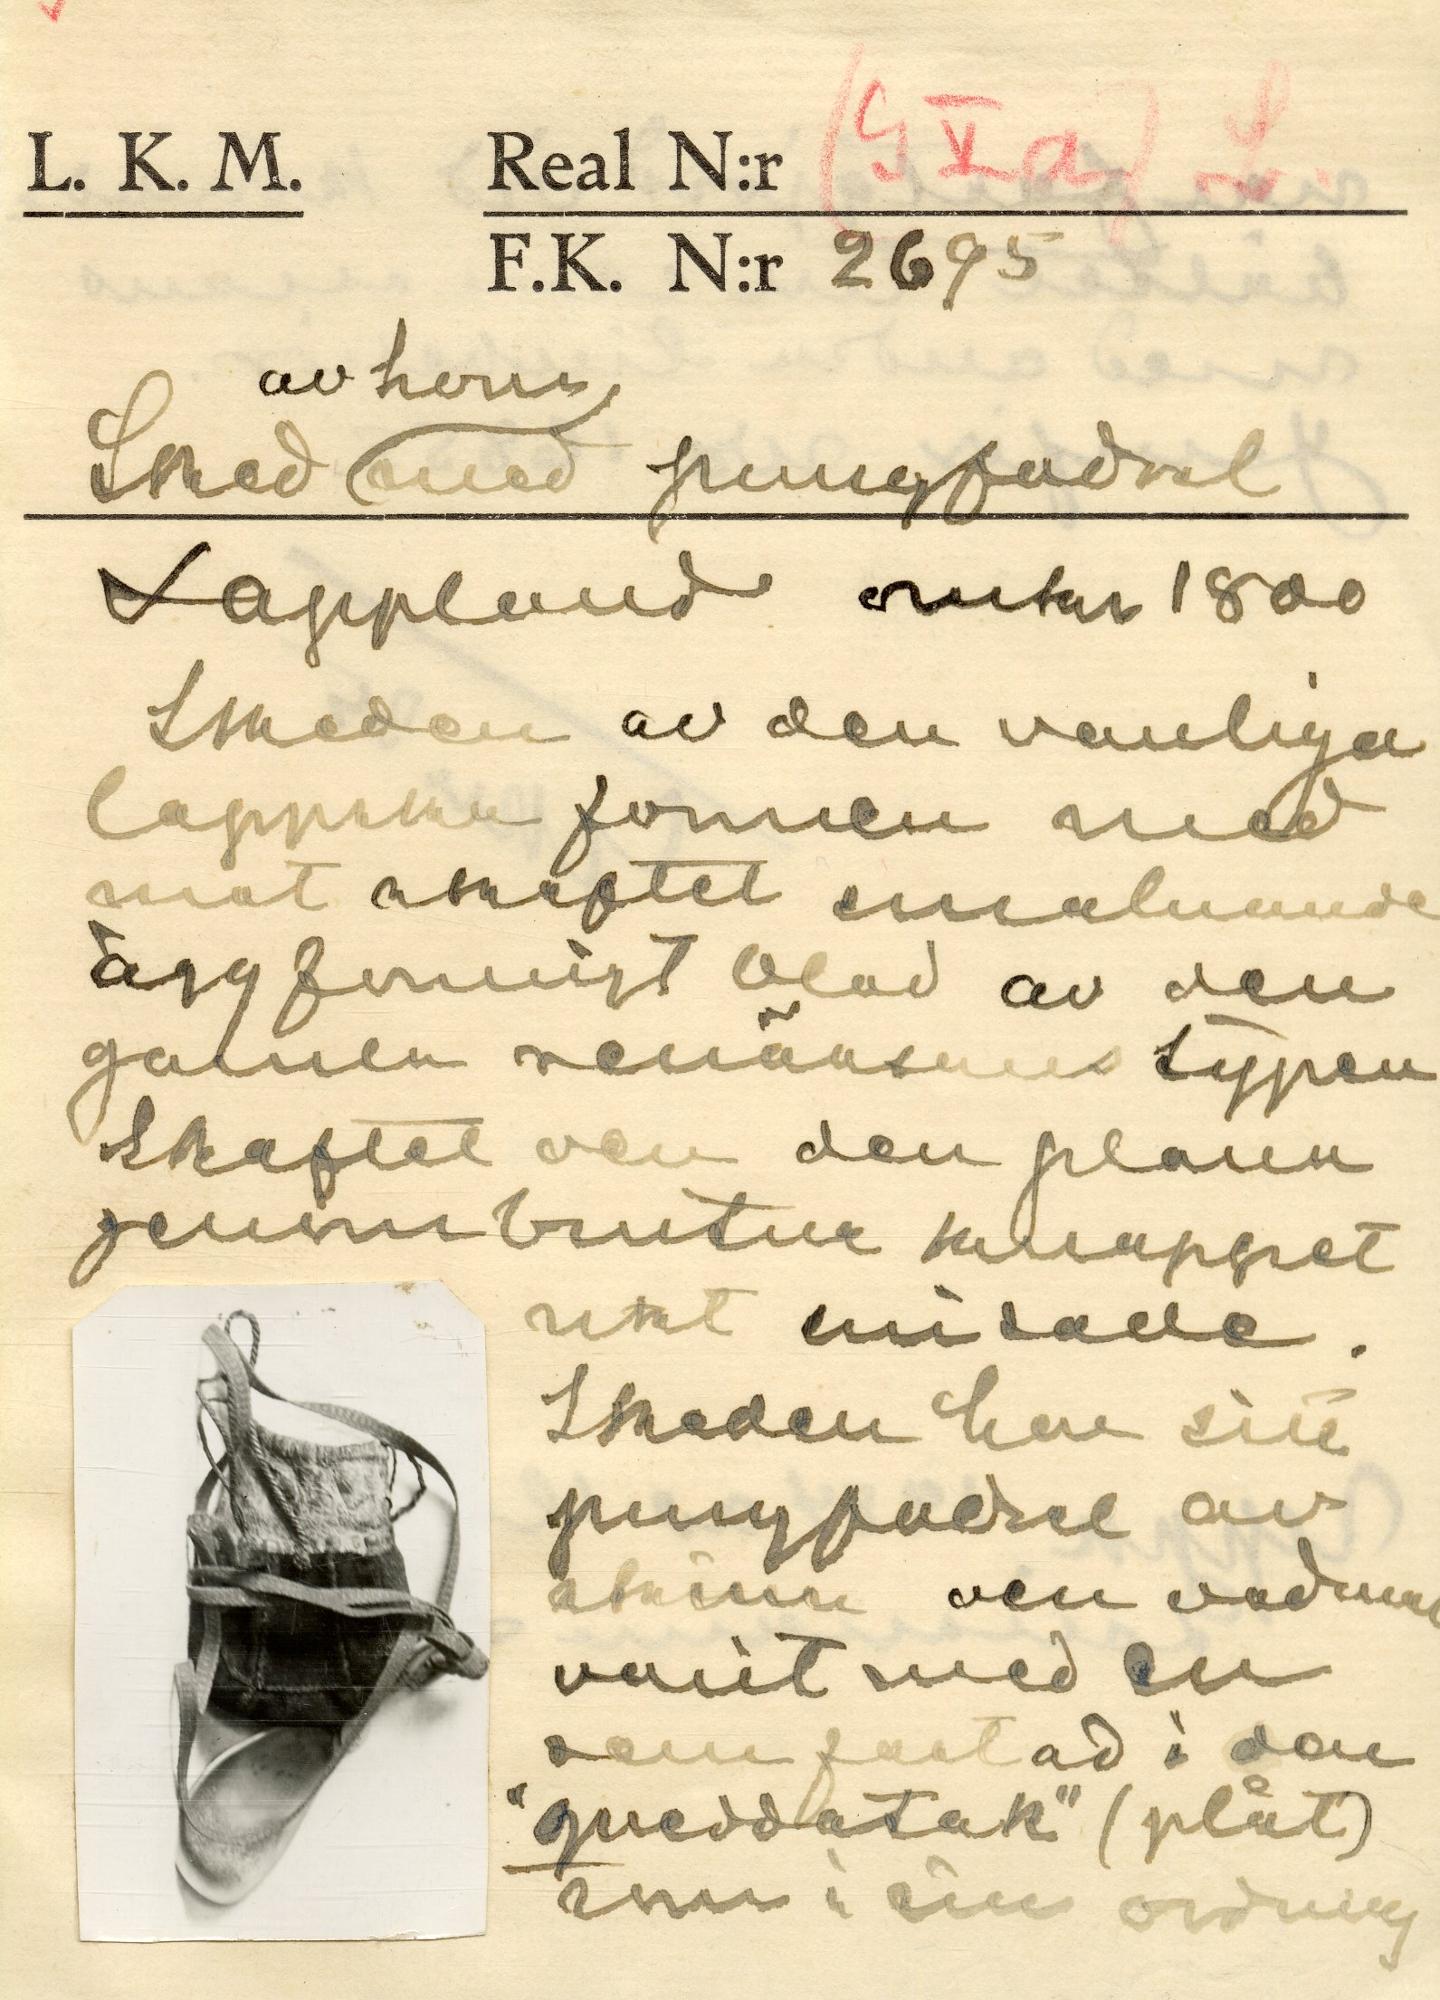 L. K. M. Real N:r (G V a) L.
F.K. N:r 2695
av horn,
Sked med pungfodral
Lappland omkr 1800
Skeden av den vanliga
lappska formen med
mot skaftet smalnande
äggformigt blad av den
gamla renässans typen
Skaftet och den plana
genombrutna knappet
rikt
Skeden har sitt
pungfodral av
skinn och vadmal
varit med en
rem fästad i den
"gneddatak" (plåt)
som i sin ordning